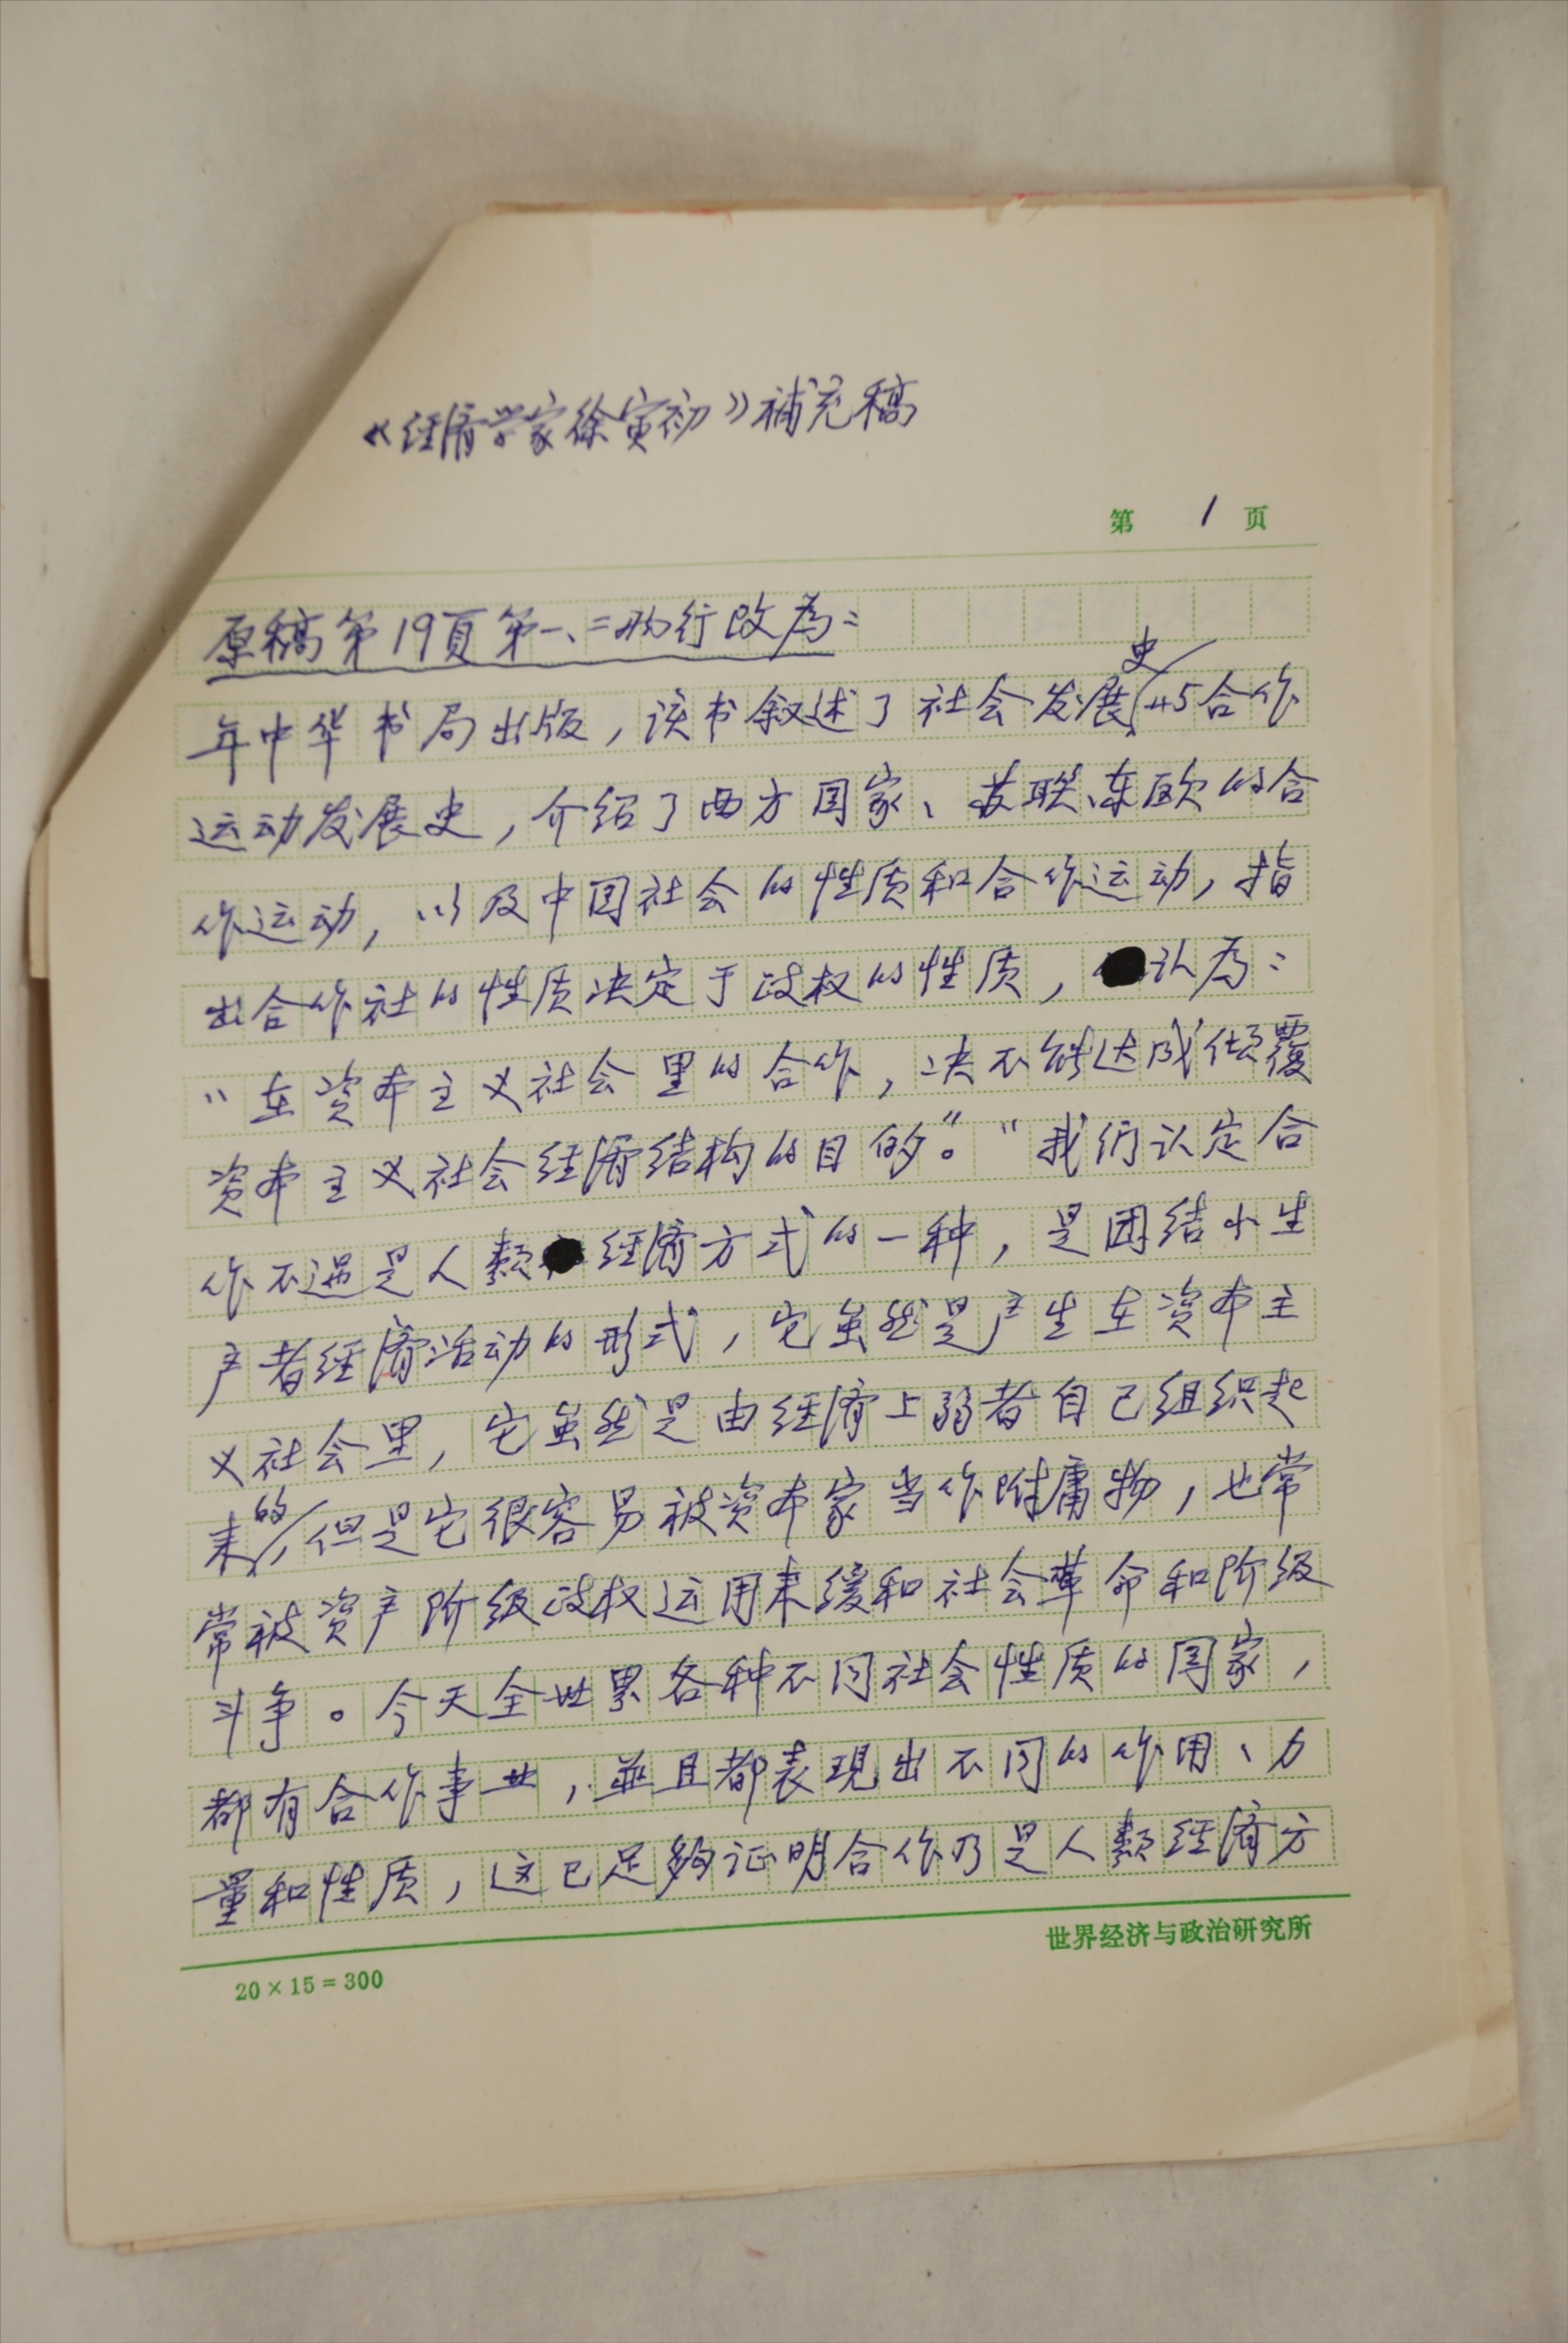 《经济学家徐寅初》补充稿
第 1 页
原稿第19頁第一、二两行改為：
年中华书局出版，该书叙述了社会发展史与合作
运动发展史，介绍了西方国家、苏联、东欧的合
作运动，以及中国社会的性质和合作运动，指
出合作社的性质决定于政权的性质，认為：
“在资本主义社会里的合作，决不能达成倾覆
资本主义社会经济结构的目的”。“我们认定合
作不过是人類经济方式的一种，是团结小生
产者经济活动的形式，它虽然是产生在资本主
义社会里，它虽然是由经济上弱者自己组织起
来的，但是它很容易被资本家当作附庸物，也常
常被资产阶级政权运用来缓和社会革命和阶级
斗争。今天全世界各种不同社会性质的国家，
都有合作事业，並且都表現出不同的作用、力
量和性质，这已足夠证明合作乃是人類经济方
世界经济与政治研究所
20×15=300